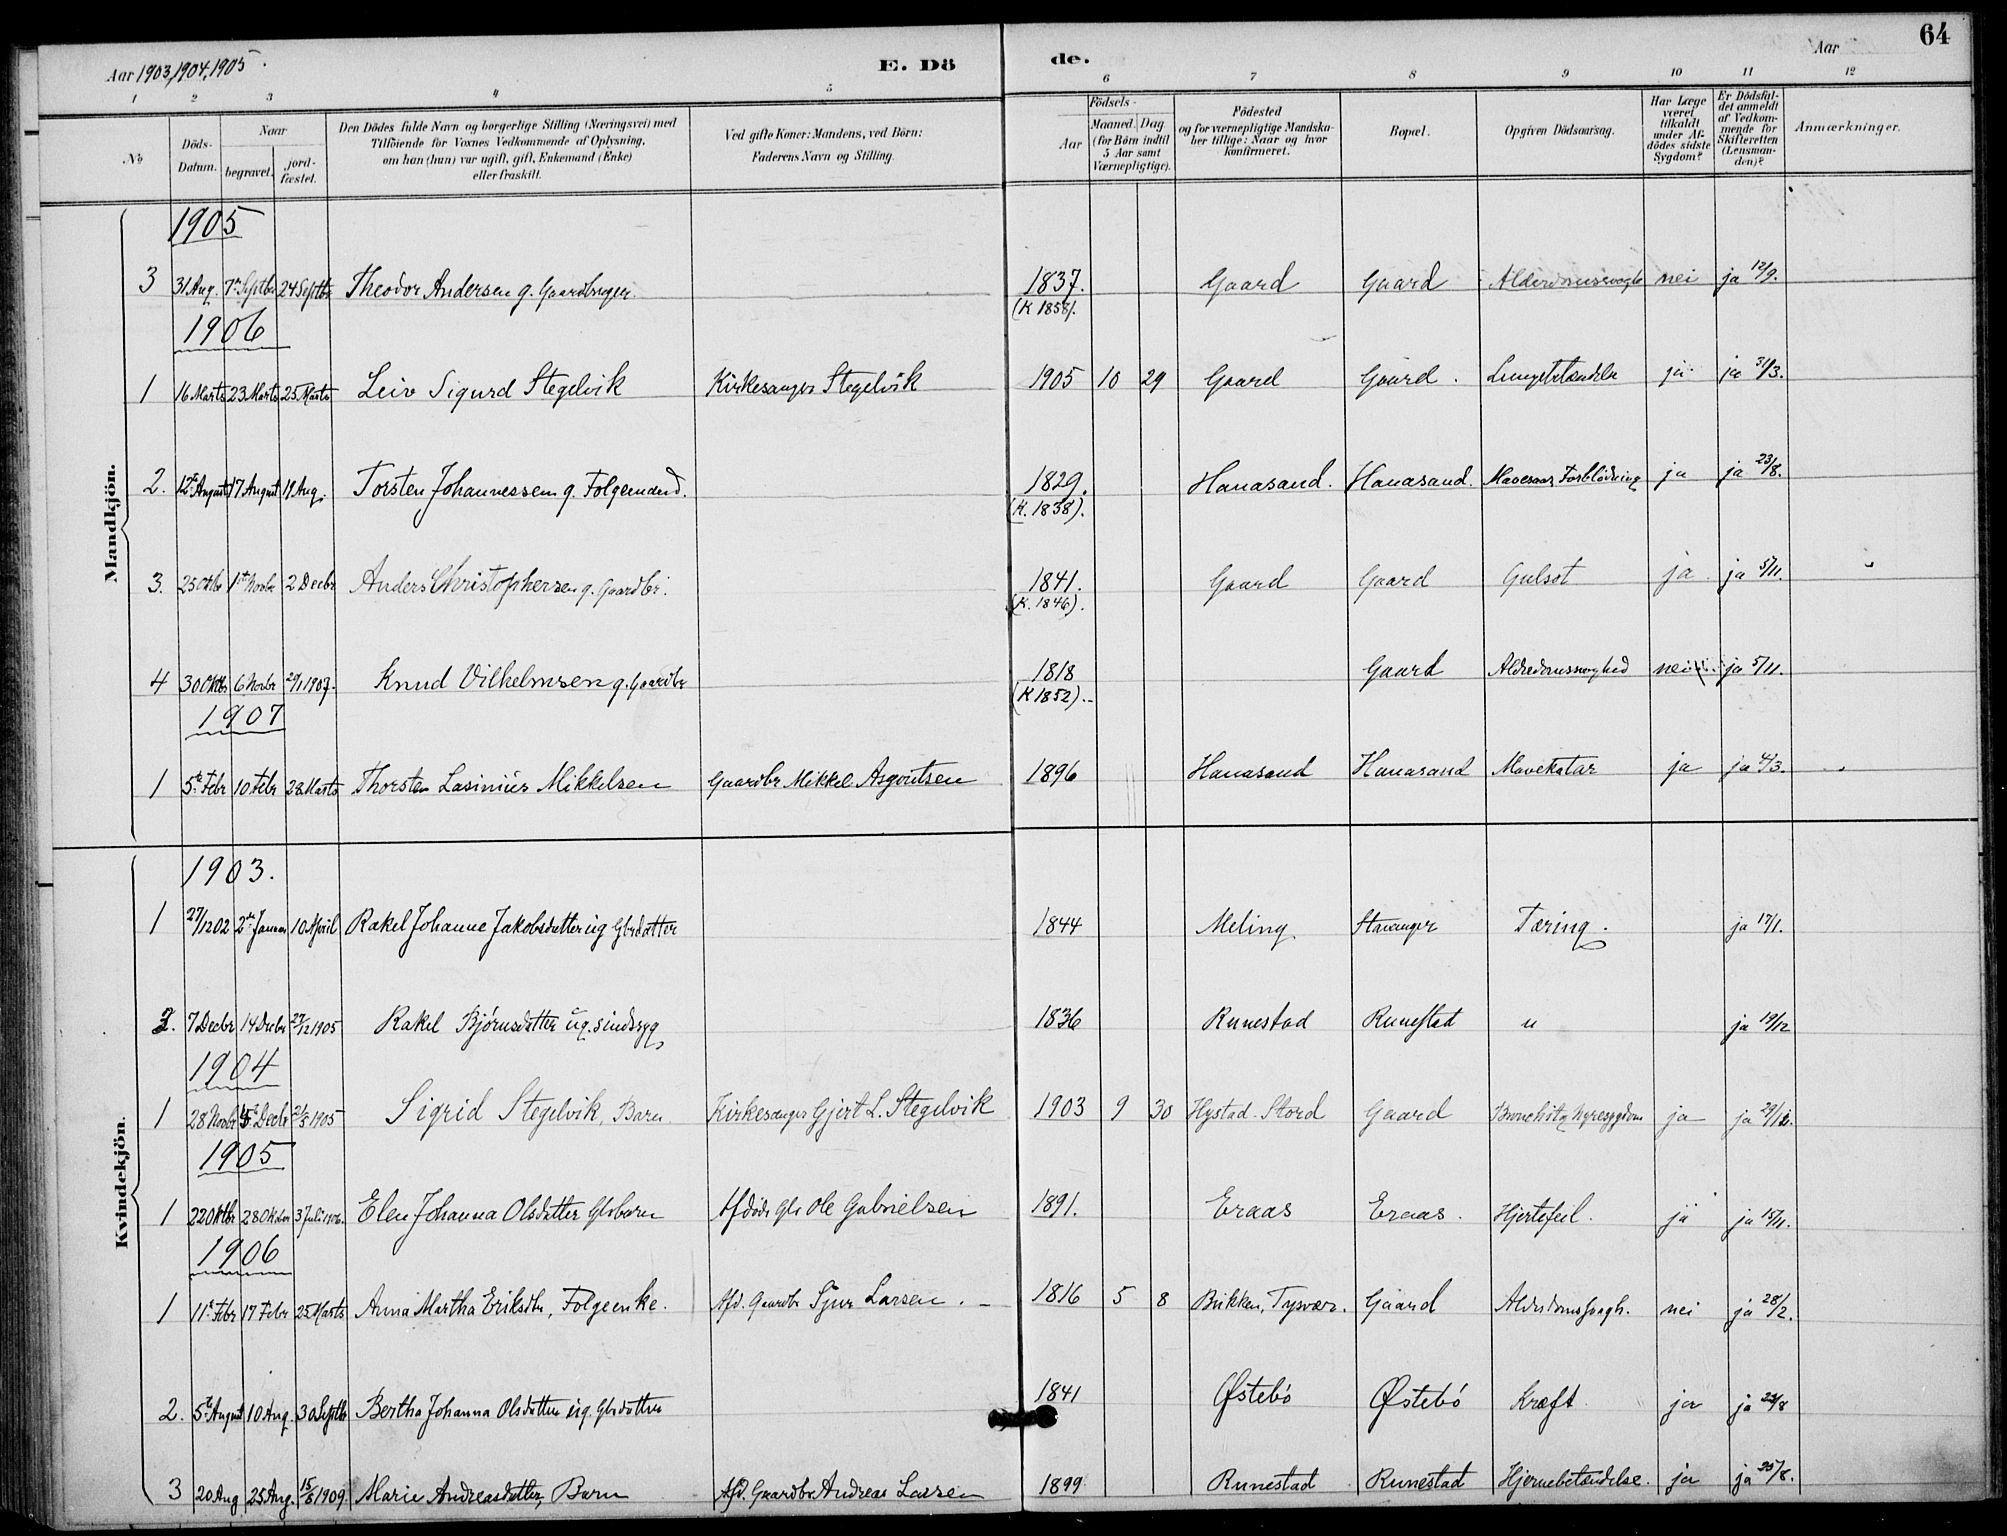 64
Aar 1903, 1904, 1905.
E. Dö
de.
Aar
1 2 3 4 5 6 7 8 9 10 11 12
No
Döds-Datum.
Naar
begravet.
jord-fæstet.
Den Dödes fulde Navn og borgerlige Stilling (Næringsvei) med
Tilföiende for Voxnes Vedkommende af Oplysning,
om han (hun) var ugift, gift, Enkemand (Enke)
eller fraskilt.
Ved gifte Koner: Mandens, ved Börn:
Faderens Navn og Stilling.
Födsels-
Aar
Maaned. Dag
(for Börn indtil
5 Aar samt
Værnepligtige).
Födested
og for værnepligtige Mandska-
ber tillige: Naar og hvor
konfirmeret.
Bopæl.
Opgiven Dödsaarsag.
Har Læge
været
tilkaldt
under Af-
dödes sidste
Sygdom?
Er Dödsfal-
det anmeldt
af Vedkom-
mende for
Skifteretten
(Lensman-
den)?
Anmærkninger.
Mandkjön.
1905
3 31 Aug. 7de Septbr 24 Septbr Theodor Andersen g. Gaardbruger. 1837. Gaard Gaard nei ja 12/9.
(K 1858).
1906
1 16 Marts 23 Marts 25 Marts Leiv Sigurd Stegelvik Kirkesanger Stegelvik 1905 10 29 Gaard Gaard. ja ja 31/3.
2. 12te August 17 August 19 Aug. Torsten Johannessen g. Folgemand. 1829. Hanasand. Hanasand. Mavesaar, Forblödning ja ja 23/8.
(K. 1838).
3. 25 Oktbr 1st Novbr 2 Decbr Anders Christophersen g. Gaardbr. 1841. Gaard Gaard Gulsot ja ja 5/11.
(K. 1846).
4 30 Oktbr 6 Novbr 29/1 1907. Knud Vilhelmsen g. Gaardbr 1818 Gaard nei ja 5/11.
(K 1852).
1907
1 5te Febr 10 Febr 28 Marts Thorsten Lasinius Mikkelsen Gaardbr Mikkel Asgautsen 1896 Hanasand Hanasand Mavekatar ja ja 4/3.
Kvindekjön.
1903.
1 27/12 02 2de Januar 10 April Rakel Johanne Jakobsdatter ug Gbrdatter 1844 Meling Stavanger Tæring. ja 17/1.
2. 7 Decbr 14 Decbr 27/12 1905 Rakel Bjørnsdatter ug. sindssyg 1836 Runestad Runestad " ja 19/12
1904
1 28 Novbr 5te Decbr 21/5 1905 Sigrid Stegelvik, Barn Kirkesanger Gjert L. Stegelvik 1903 9 30 Hystad Stord Gaard ja ja 29/12.
1905
1 22 Oktbr 28 Oktbr 3 Juli 1906. Elen Johanna Olsdatter Gbrbarn Afdöde Gbr Ole Gabrielsen 1891. Eraas Eraas. Hjertefeil. ja ja 15/11.
1906
1 11te Febr 17 Febr 25 Marts Anna Martha Eriksdtr, Folgeenke. Afd. Gaardbr Sjur Larsen. 1816 5 8 Bukken, Tysvær. Gaard nei ja 28/2.
2. 5te August 10 Aug. 30 Septbr Bertha Johanna Olsdatter ug. Gbrdatter 1841 Østebö Østebö Kræft ja ja 24/8
3 20 Aug 25 Aug. 15/8 1909 Marie Andreasdatter, Barn Afd. Gaardbr Andreas Larsen 1899 Runestad Runestad Hjernebetændelse. ja ja 25/8.